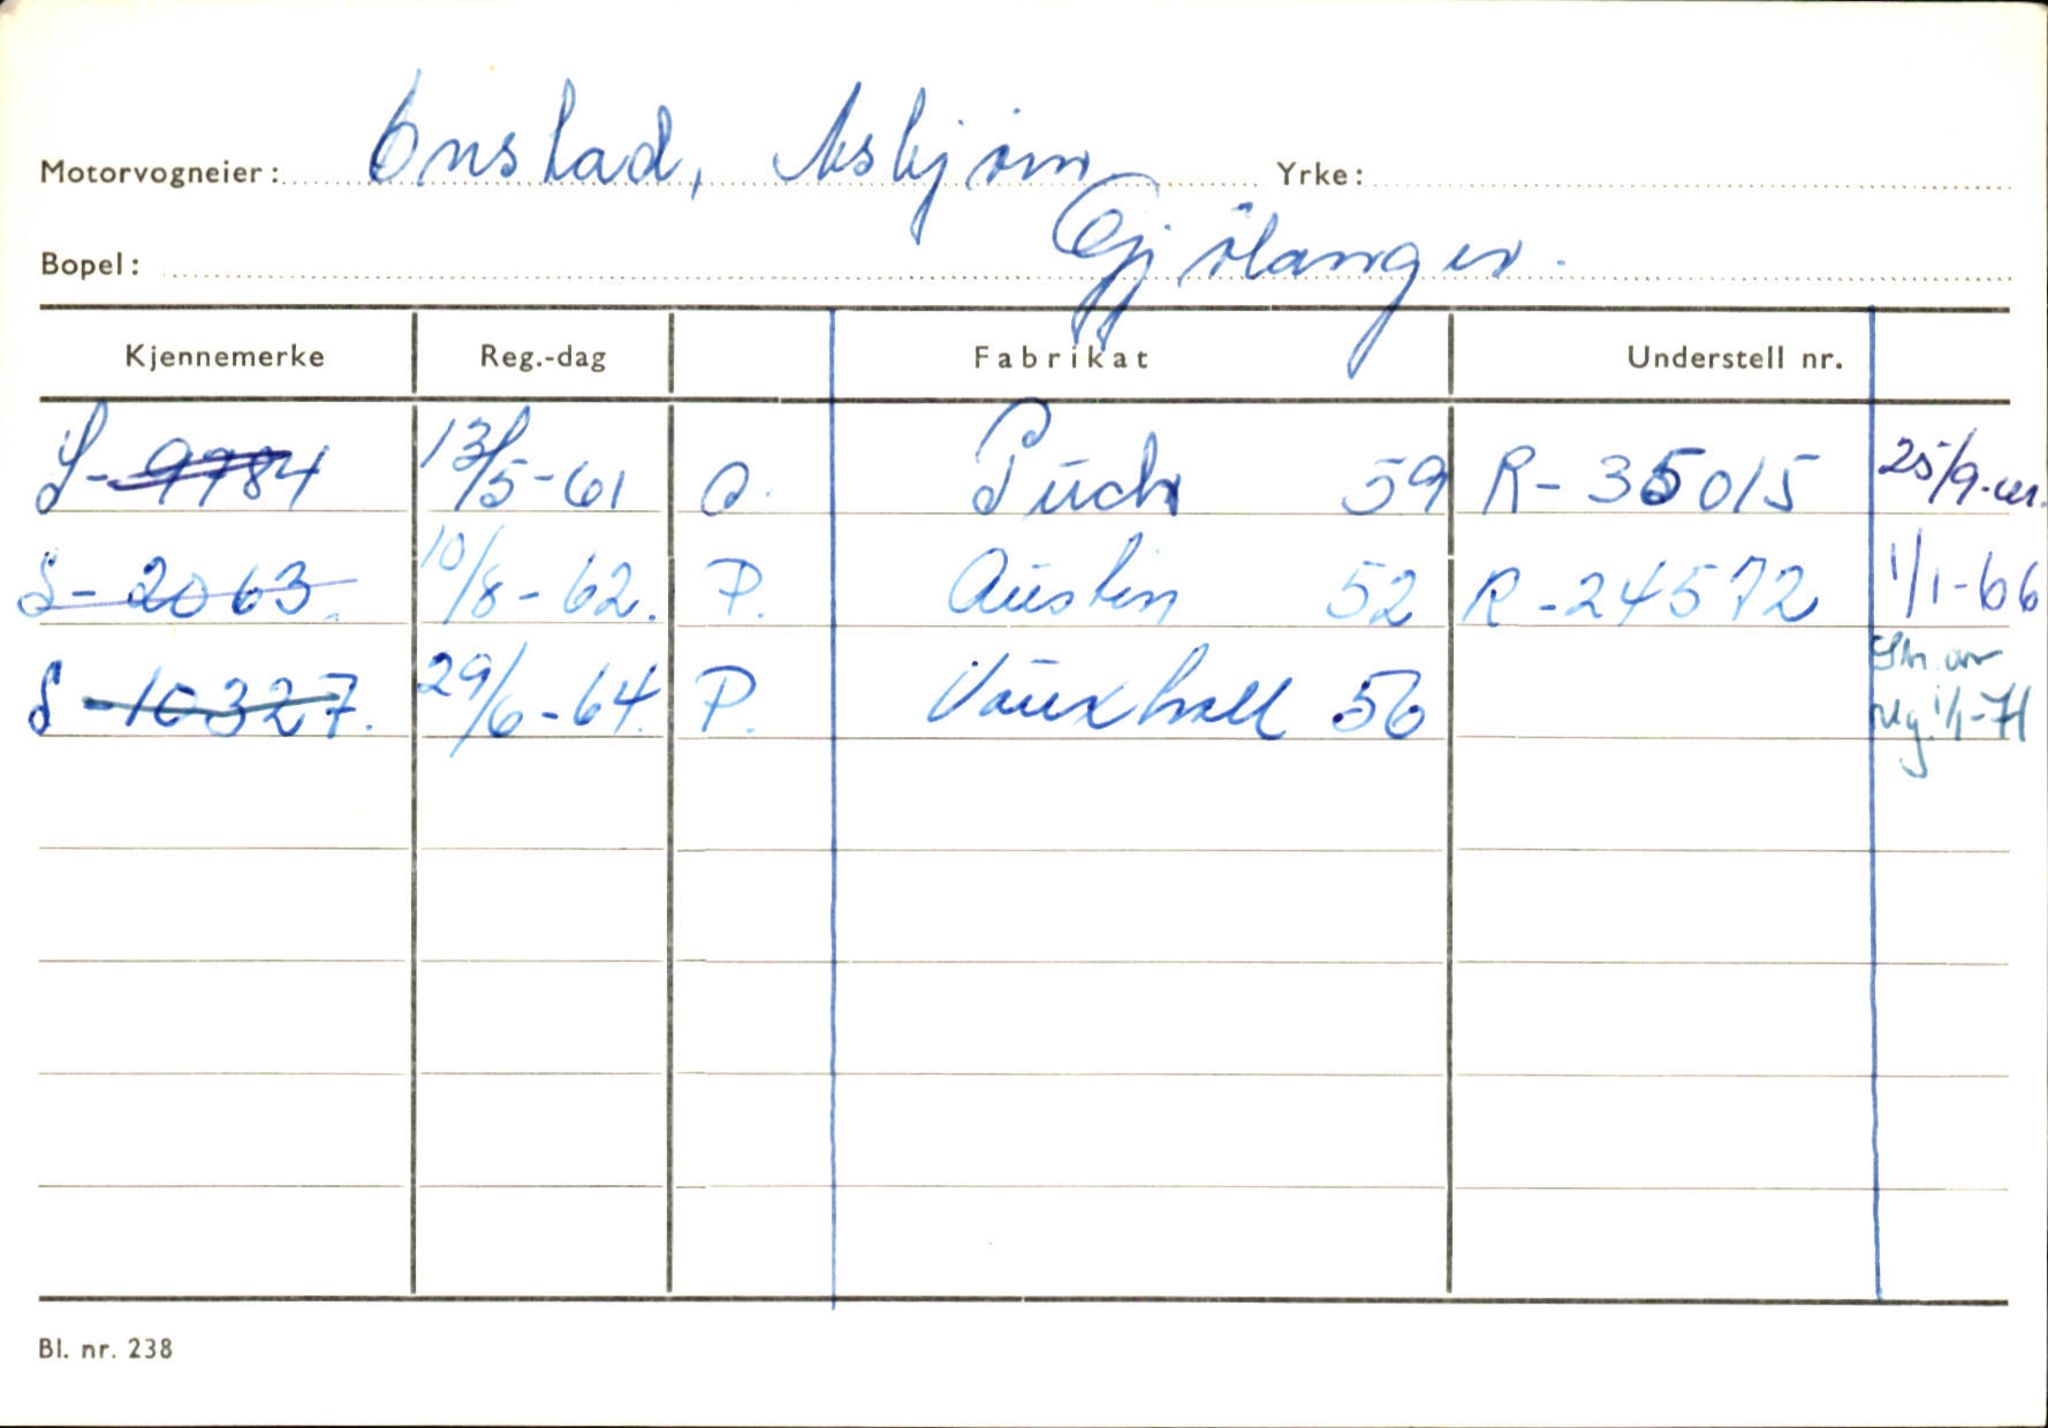 Motorvogneier: Onstad, Asbjørn Yrke:
Bopel: Gjölanger.
Kjennemerke Reg.-dag Fabrikat Understell nr.
S-9984 13/5-61 O. Puch 59 R-35015 25/9-
S-2063. 10/8-62. P. Austin 52 R-24572 1/1-66
S-10327. 29/6-64. P. Vauxhall 56 Str. av
reg. 1/1-71
Bl. nr. 238